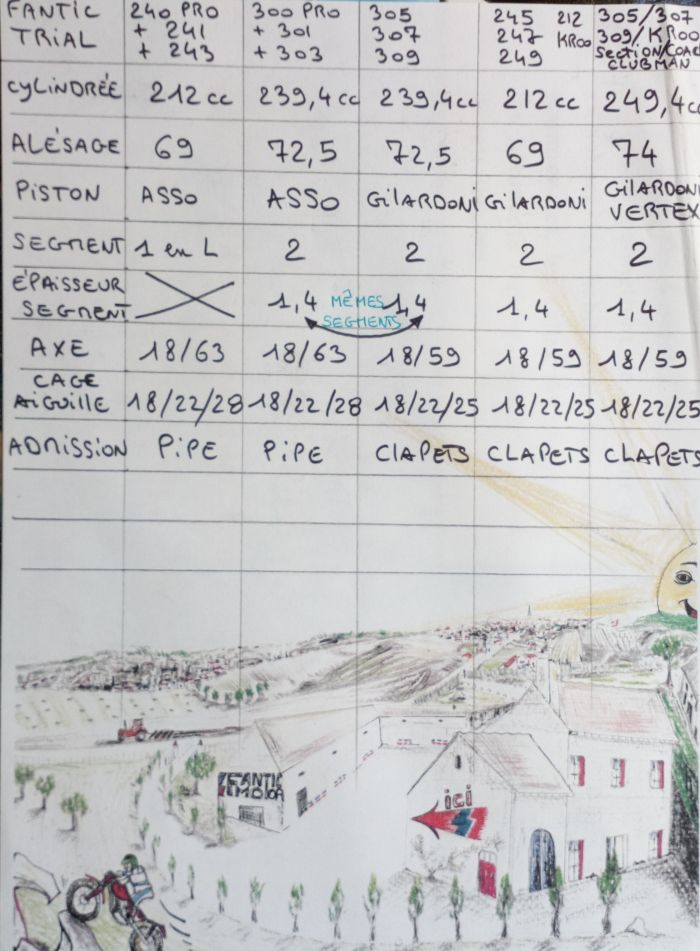 FANTIC 240 PRO 300 PRO 305 245 212 305/307
TRIAL + 241 + 301 307 247 KROO 309/KROO
+ 243 + 303 309 249 SECTION/COAC
CLUBMAN
CYLINDRÉE 212 cc 239,4 cc 239,4 cc 212 cc 249,4 cc
ALÉSAGE 69 72,5 72,5 69 74
PISTON ASSO ASSO GILARDONI GILARDONI GILARDONI
VERTEX
SEGMENT 1 en L 2 2 2 2
ÉPAISSEUR
SEGMENT 1,4 MÊMES 1,4 1,4 1,4
SEGMENTS
AXE 18/63 18/63 18/59 18/59 18/59
CAGE
AIGUILLE 18/22/28 18/22/28 18/22/25 18/22/25 18/22/25
ADMISSION PIPE PIPE CLAPETS CLAPETS CLAPETS
FANTIC
MOTOR
ici